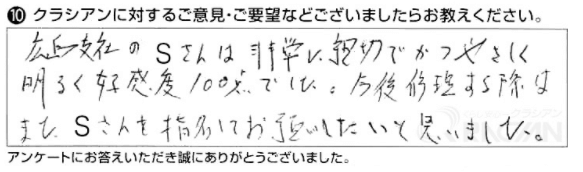 ⑩ クラシアンに対するご意見・ご要望などございましたらお教えください。
広島支社のSさんは非常に親切でかつやさしく
明るく好感度100点でした。今後修理する際は
またSさんを指名してお願いしたいと思いました。
アンケートにお答えいただき誠にありがとうございました。